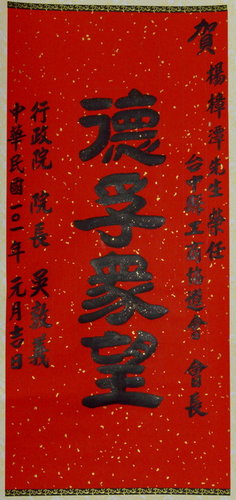 賀
楊樟潭先生榮任
台中縣工商協進會 會長
德孚眾望
行政院 院長 吳敦義
中華民國一○一年 元月吉日